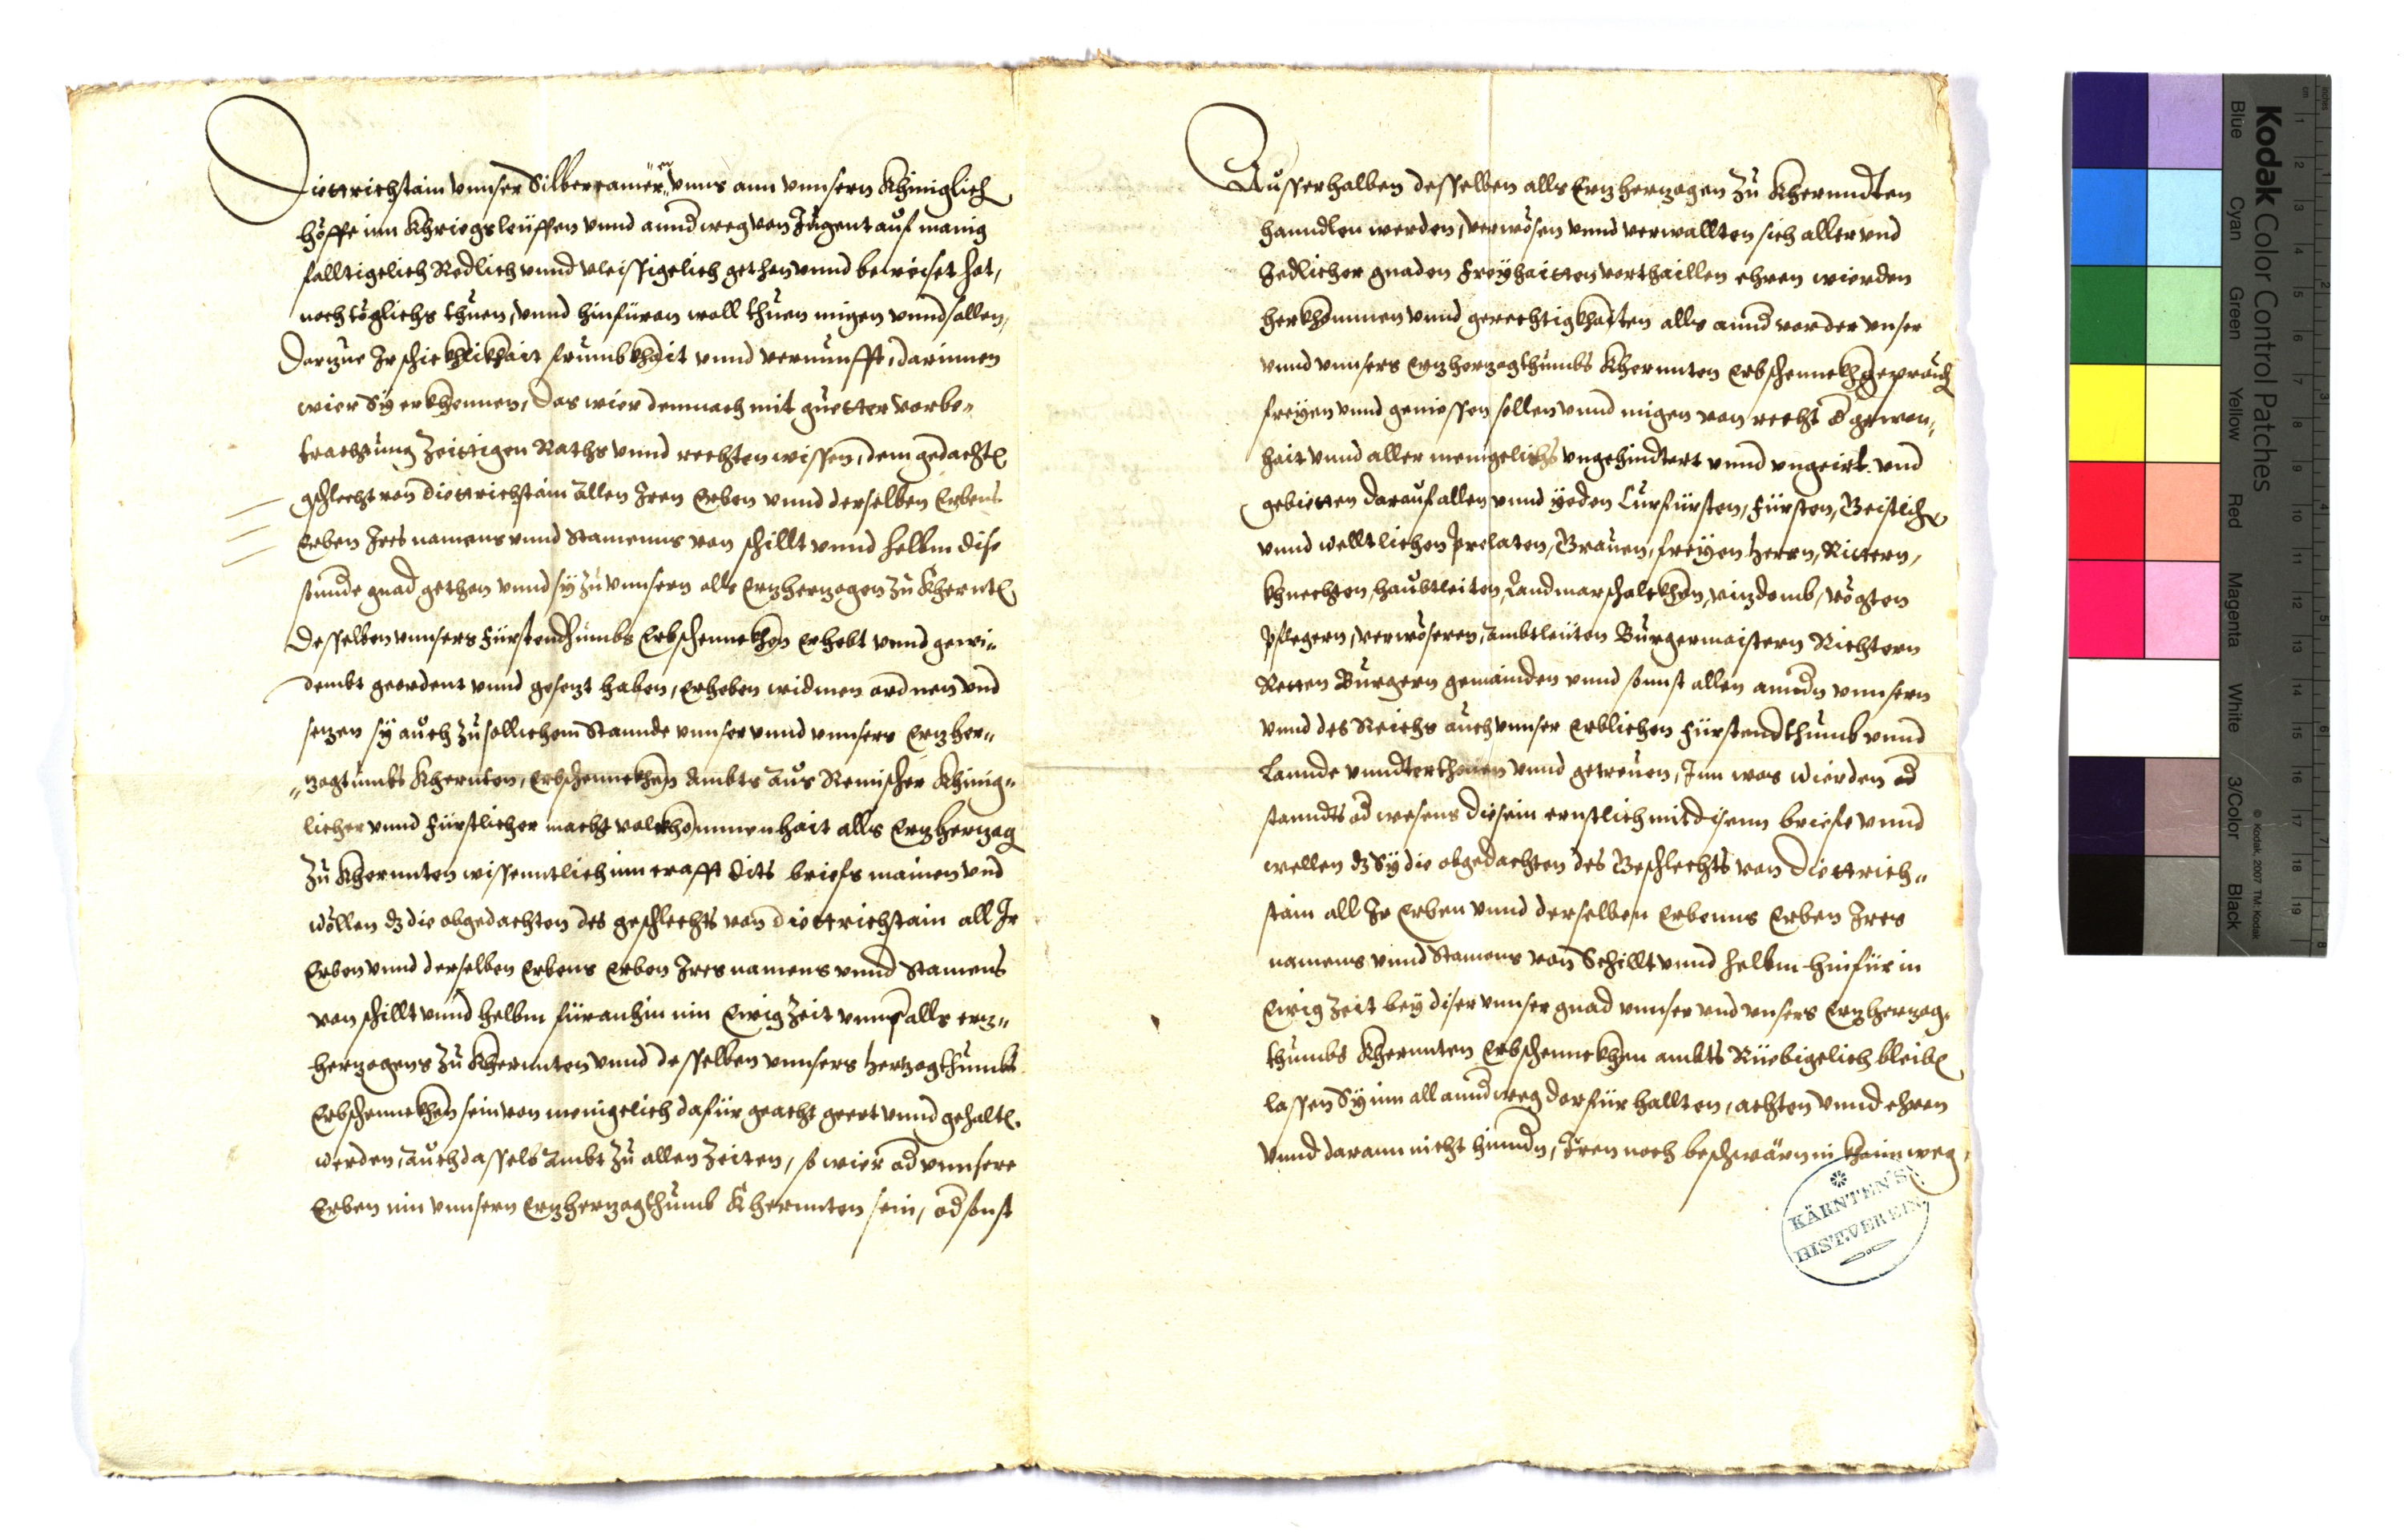 Diettrichstain vnnser Silbercamerer vnns ann vnnsern Khiniglich
höffe inn Khriegsleüffen vnnd annd weg von Jugent auf manig
falltigelich Redlich vnnd vleissigelich gethan vnnd beweiset hat,
noch täglichs thuen, vnnd hinfüran woll thuen migen vnnd sollen,
Darzue Ir schickhlikhait frumbkhait vnnd vernunfft, darinnen
wier Sy erkhennen, Das wier demnach mit guetter vorbe„
trachtung Zeittigen Raths vnnd rechten wissen, dem gedachten
gschlecht von Diettrichstain allen Iren Erben vnnd derselben Erbens
Erben Ires namens vnnd Stamenns von schillt vnnd helbm dise
sunnde gnad gethan vnnd sy zu vnnsern alls Ertzhertzogen zu Khernten
Desselben vnnsers Fürstendthumbs Erbschennckhen Erhebt vnnd gewi„
dembt geordent vnnd gesetzt haben, Erheben widmen ordnen vnd
setzen sy auch zu sollichem Stannde vnnser vnnd vnnsers Ertzher„
„zogtumbs Khernten, Erbschennckhen Ambts aus Remischer Khinig„
licher vnnd Fürstlicher macht volkhommenhait alls Ertzhertzog
zu Khernnten wissenntlich inn crafft dits briefs mainen vnd
wöllen dz die obgedachten des geschlechts von Diettrichstain all Ir
Erben vnnd derselben Erbens Erben Ires namens vnnd Stamens
von schillt vnnd helbm füranhin inn Ewig Zeit vnnser alls ertz„
hertzogens zu Khernnten vnnd desselben vnnsers hertzogthumbs
Erbschennckhen sein von menigelich dafür geacht geert vnnd gehalten
werden, auch dasselb Ambt zu allen Zeiten, so wier od vnnsere
Erben inn vnnsern Ertzhertzogthumb Khernnten sein, od sonst
Ausserhalben desselben alls Ertzhertzogen zu Khernndten
hanndlen werden, verwösen vnnd verwallten sich aller vnd
Jedlicher gnaden Freyhaitten vorthaillen ehren wierden
herkhommen vnnd gerechtigkhaiten alls annd vorder vnser
vnnd vnnsers Ertzhertzogthumbs Khernnten Erbschennckh geprauch
freyen vnnd geniessen sollen vnnd migen von recht od gewon„
hait vnnd aller menigelichs vngehindtert vnnd vngeirt. vnd
gebietten darauf allen vnnd yeden Curfürsten, Fürsten, Geistlichen
vnnd welltlichen Prelaten, Grauen, freyen herrn, Rittern,
khnechten, haubtleiten, Landmarschalckhen, vitzdomb, vögten
Pflegern, verwösern, Ambtleüten Burgermaistern Richtern
Retten Burgern gemainden vnnd sonnst allen anndn vnnsern
vnnd des Reichs auch vnnser Erblichen Fürstendthumb vnnd
Lannde vnndterthonen vnnd getreuen, Inn was wierden od
stanndts od wesens die sein ernstlich mit disem briefe vnnd
wellen dz Sy die obgedachten des Geschlechts von Diettrich„
stain all Ir Erben vnnd derselben Erbenns Erben Ires
namens vnnd Stamens von Schillt vnnd helbm hinfür in
Ewig Zeit bey diser vnnser gnad vnnser vnd vnsers Ertzhertzog„
thumbs Khernnten Erbschennckhen ambts Rüebigelich bleiben
lassen Sy inn all annd weg darfür hallten, achten vnnd ehren
vnnd darann nicht hinndn, Irren noch beschwärn in khain weg,
KÄRNTEN'S
HIST.VEREIN
Kodak Color Control Patches
Blue Cyan Green Yellow Red Magenta White 3/Color Black
© Kodak, 2007 TM: Kodak